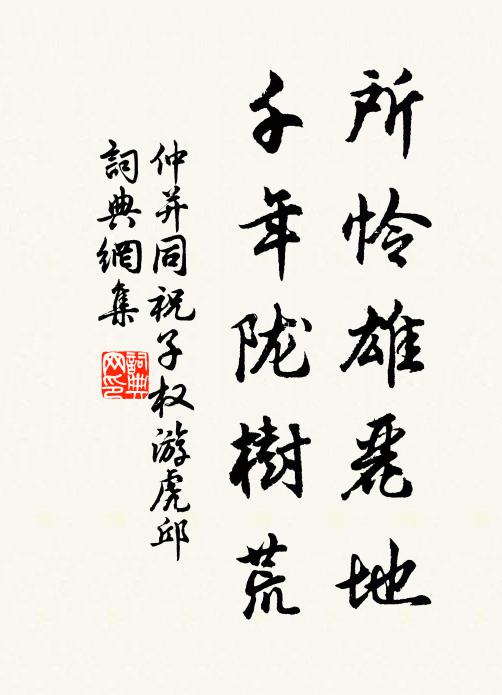 所怜雄丽地
千年陇樹荒
仲并同祝子权游虎邱
詞典網集
詞典
网印